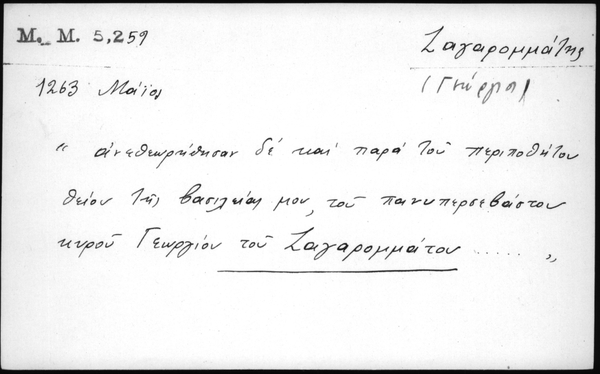 M. M. 5,259
Ζαγαρομμάτης
(Γεώργιος)
1263 Μάϊος
“ ἀνεθεωρήθησαν δέ καί παρά τοῦ περιποθήτου
θείου τῆς βασιλείας μου, τοῦ πανυπερσεβάστου
κυροῦ Γεωργίου τοῦ Ζαγαρομμάτου ...... „